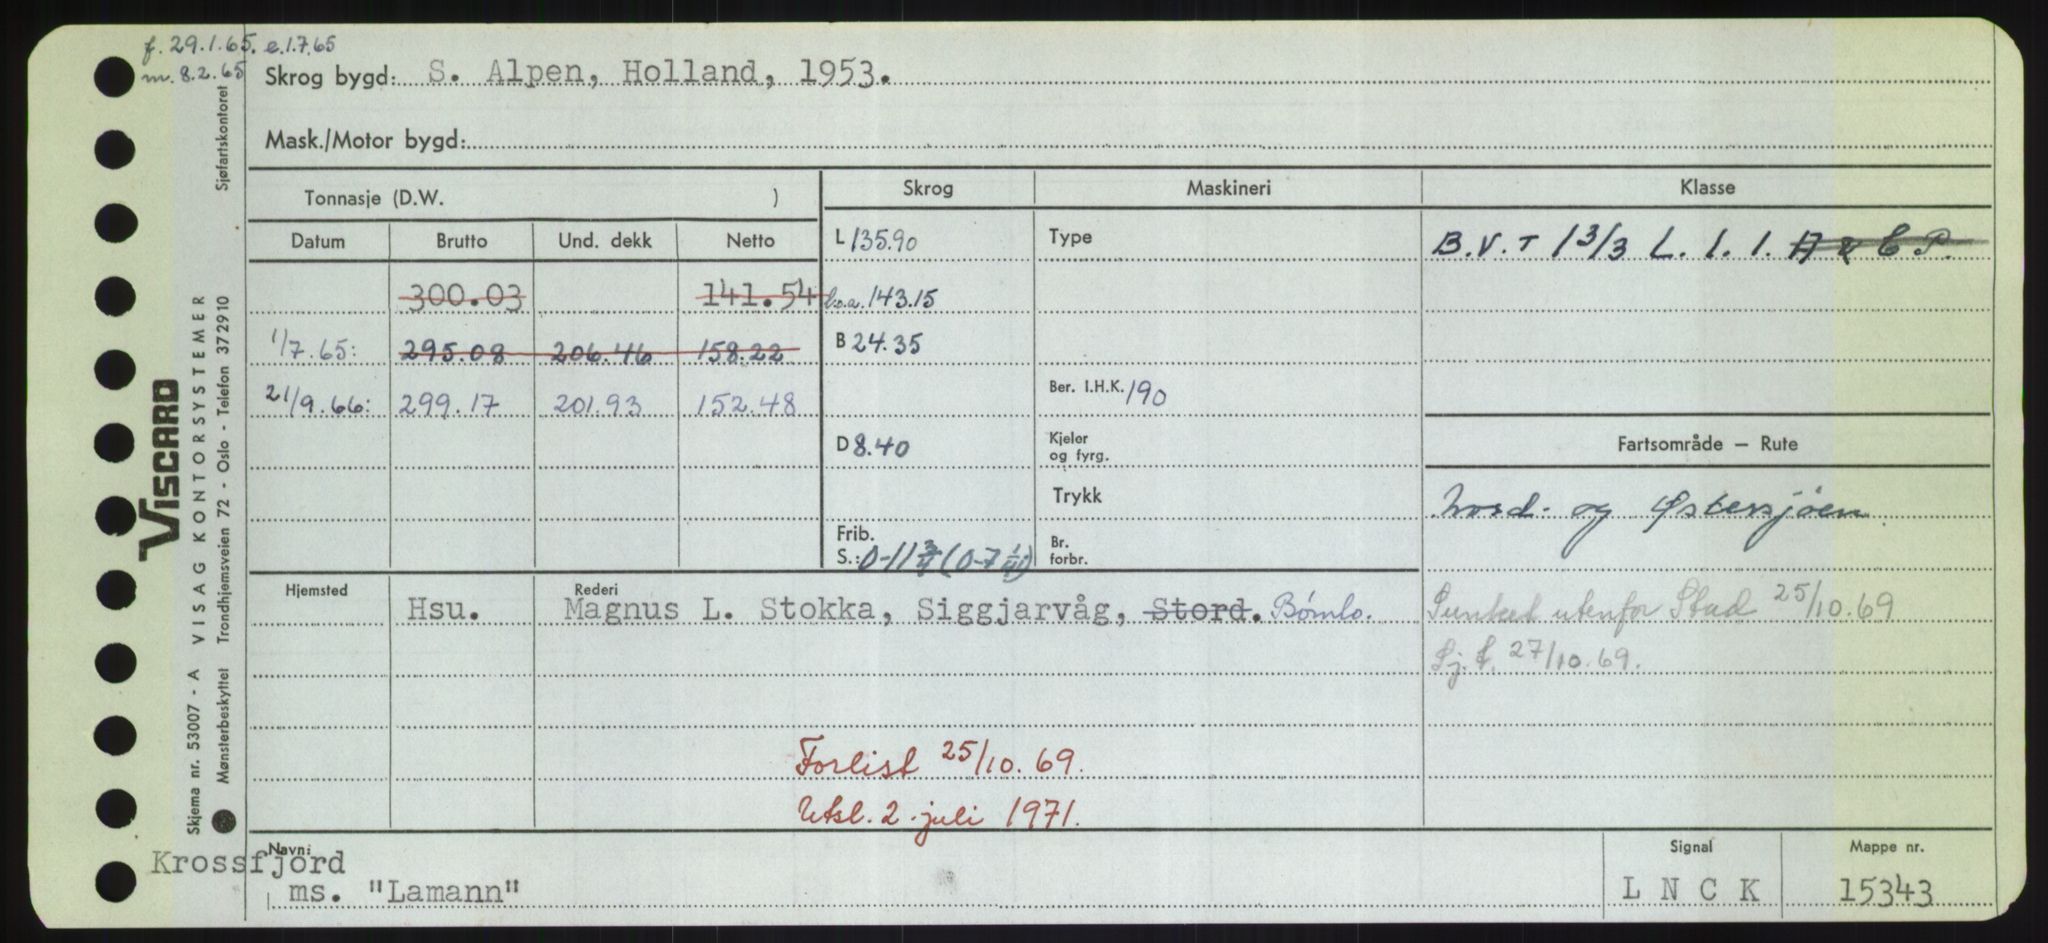 f. 29.1.65. e.1.7.65
m. 8.2.65
Skrog bygd: S. Alpen, Holland, 1953.
Mask./Motor bygd:
Tonnasje (D.W. )
Skrog Maskineri Klasse
Datum Brutto Und. dekk Netto
L 135.90 Type B.V. T 1 3/3 L. 1. 1. A & C P.
300.03 141.54 l.o.a. 143.15
1/7.65: 295.08 206.46 158.22 B 24.35
21/9.66: 299.17 201.93 152.48 Ber. I.H.K. 190
D 8.40 Kjeler og fyrg. Fartsområde — Rute
Trykk Nord- og Østersjøen
Frib. S.: 0-11 3/4 (0-7 1/4) Br. forbr.
Hjemsted Rederi
Hsu. Magnus L. Stokka, Siggjarvåg, Stord. Bömlo. Sunket utenfor Stad 25/10.69
Sj. f. 27/10.69.
Forlist 25/10.69.
Utsl. 2. juli 1971.
Navn: Signal Mappe nr.
Krossfjord
ms. "Lamann" L N C K 15343
VISCARD
Skjema nr. 53007 - A VISAG KONTORSYSTEMER
Mønsterbeskyttet Trondhjemsveien 72 - Oslo - Telefon 372910 Sjøfartskontoret